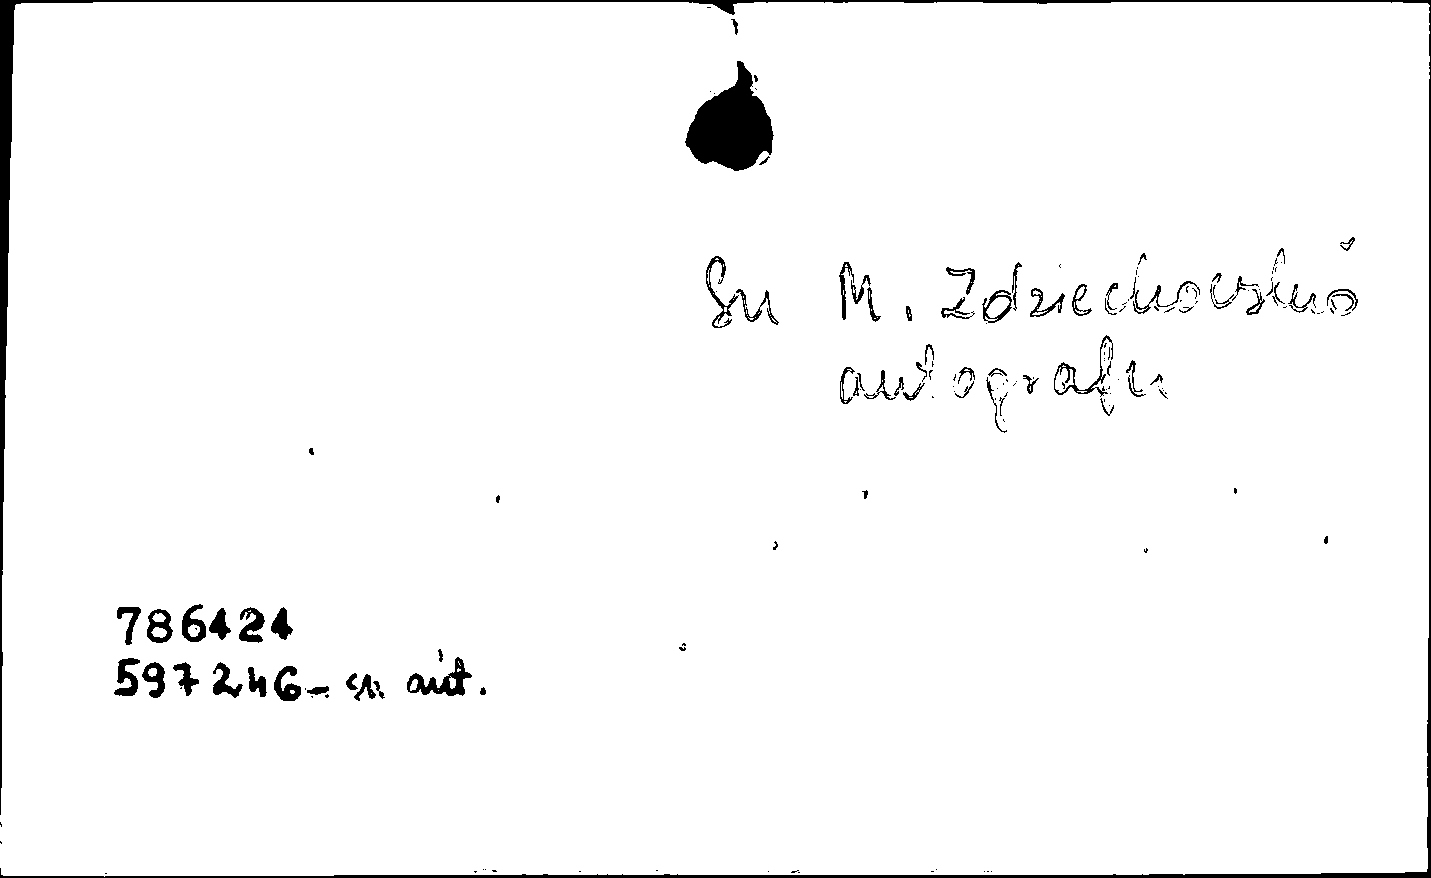 Su M. Zdziechowskio
autografu
786424
597246 - su aut.